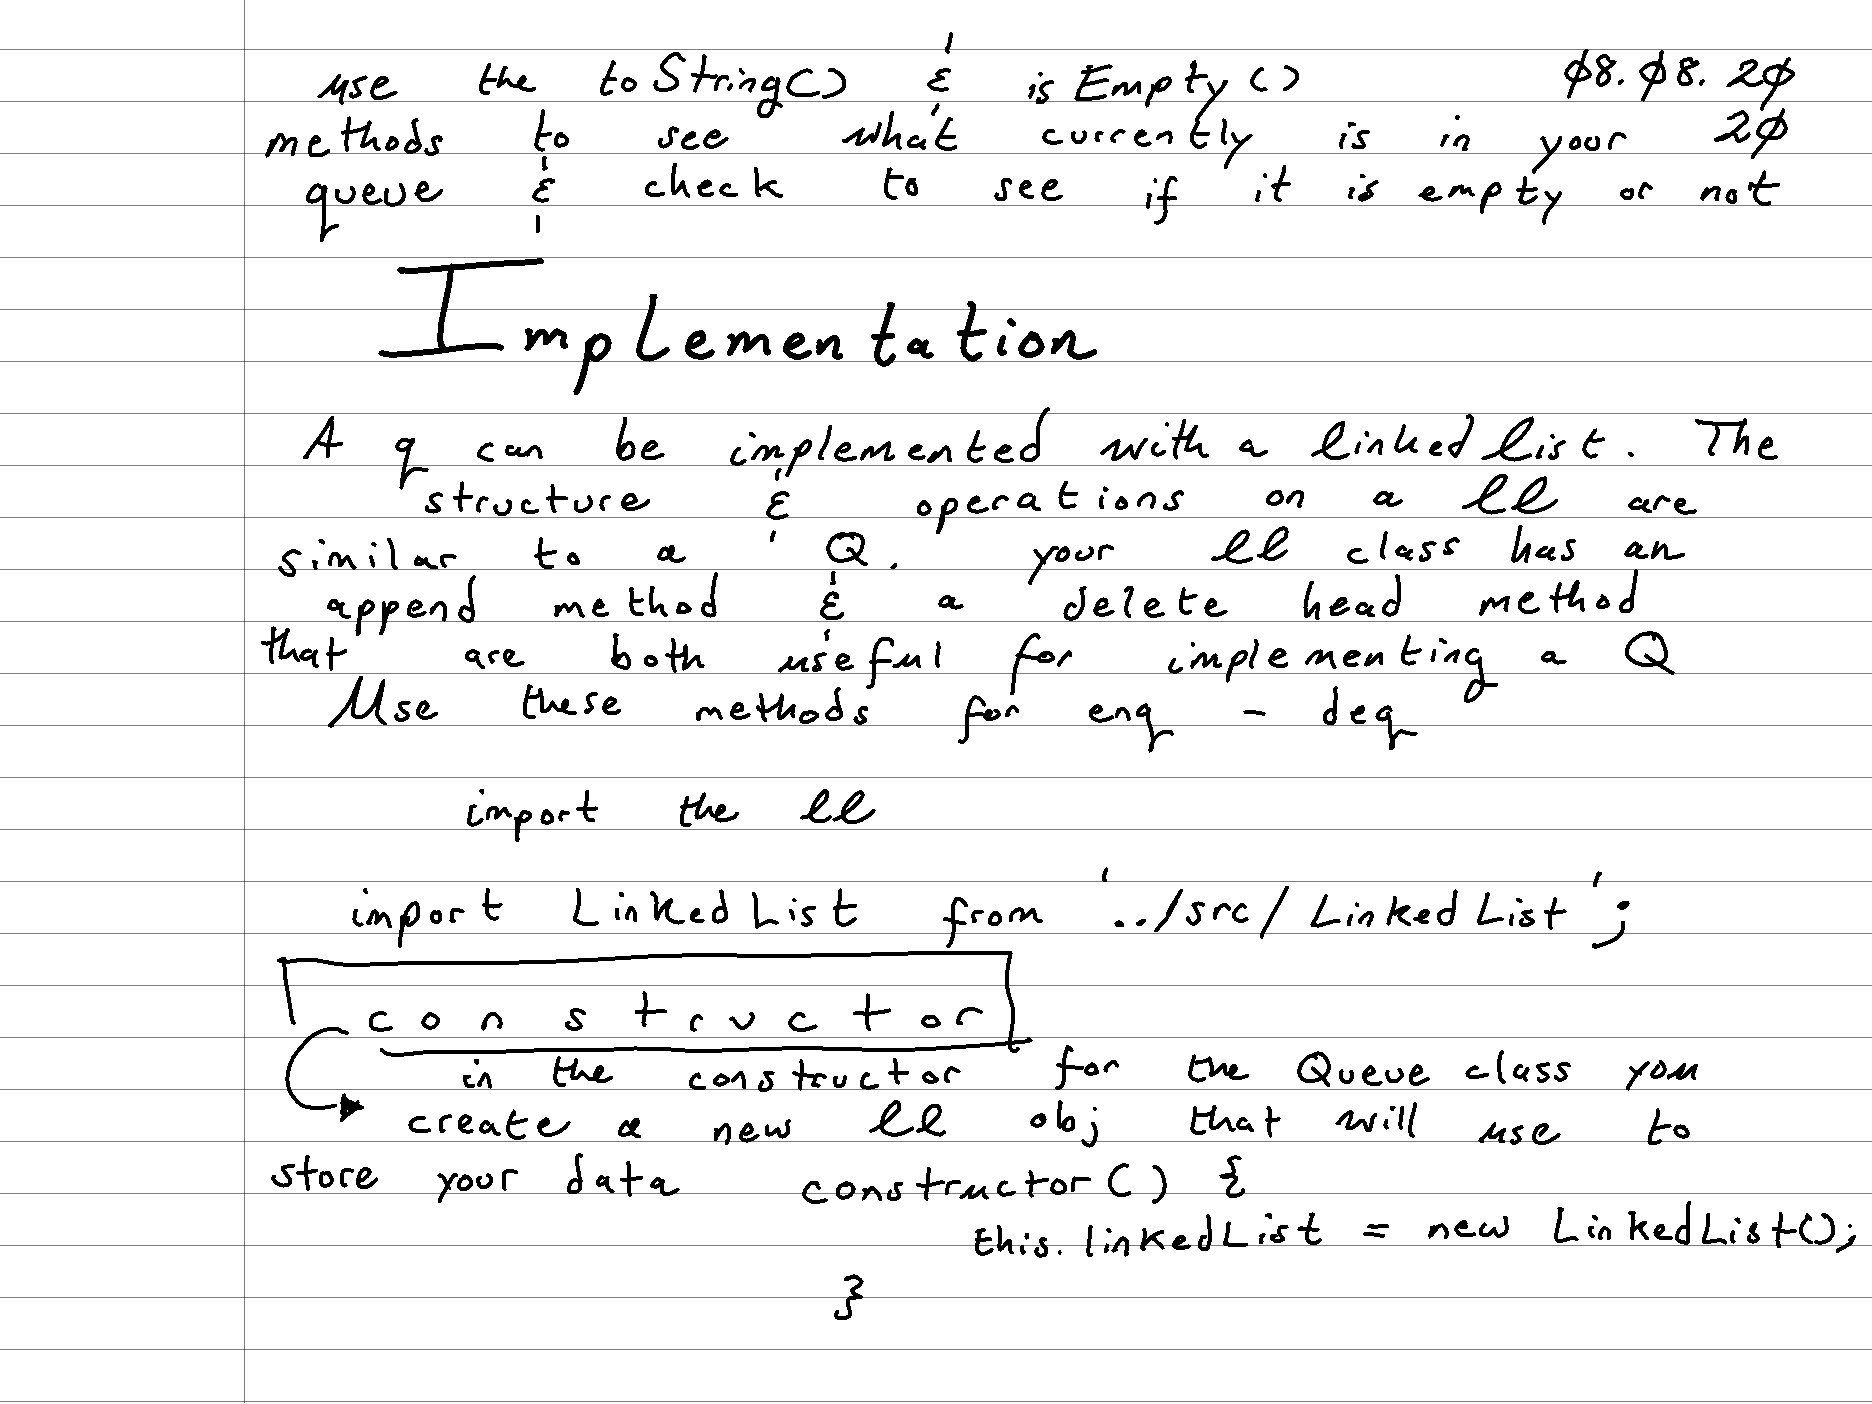 use the toString() & isEmpty() 08.08.20
methods to see what currently is in your 20
queue & check to see if it is empty or not
Implementation
A q can be implemented with a linked list. The
structure & operations on a ll are
similar to a Q. your ll class has an
append method & a delete head method
that are both useful for implementing a Q
Use these methods for enq - deq
import the ll
import LinkedList from '../src/LinkedList';
constructor
in the constructor for the Queue class you
create a new ll obj that will use to
store your data constructor() {
this.linkedList = new LinkedList();
}